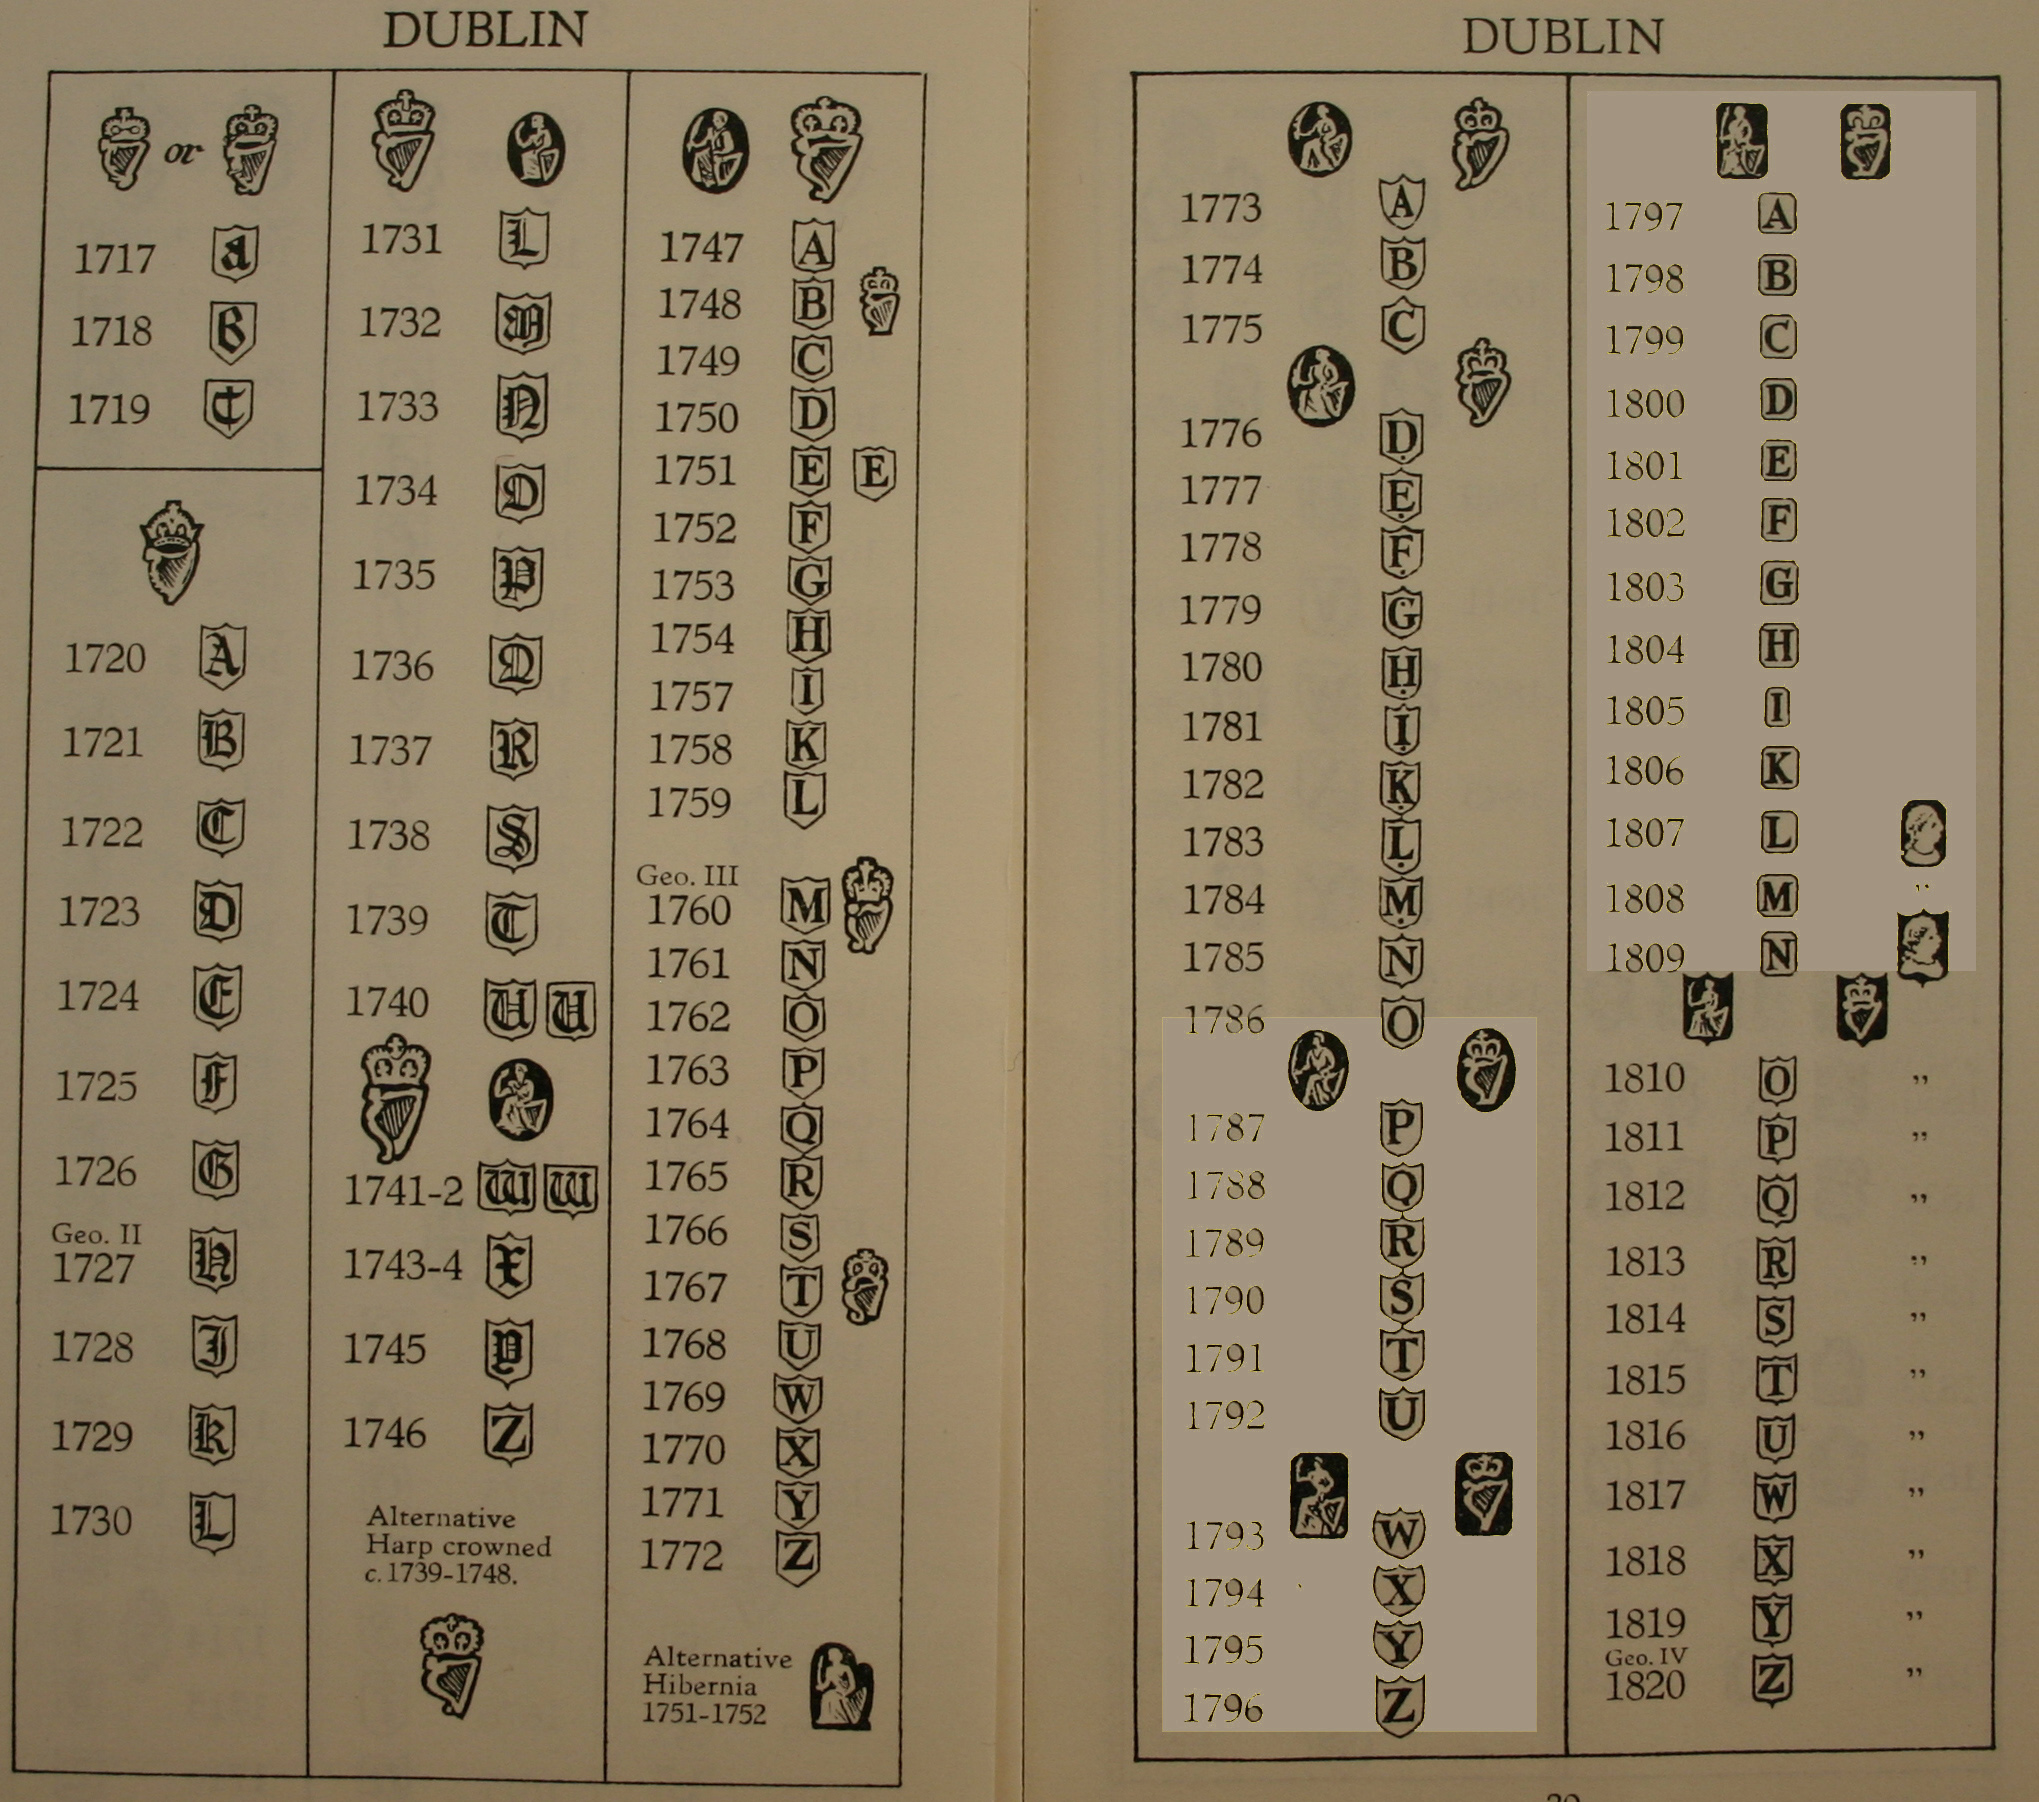 DUBLIN
or
1717 a
1718 B
1719 C
1720 A
1721 B
1722 C
1723 D
1724 E
1725 F
1726 G
Geo. II
1727 H
1728 I
1729 K
1730 L
1731 L
1732 M
1733 N
1734 O
1735 P
1736 Q
1737 R
1738 S
1739 T
1740 U U
1741-2 W W
1743-4 X
1745 Y
1746 Z
Alternative
Harp crowned
c. 1739-1748.
1747 A
1748 B
1749 C
1750 D
1751 E E
1752 F
1753 G
1754 H
1757 I
1758 K
1759 L
Geo. III
1760 M
1761 N
1762 O
1763 P
1764 Q
1765 R
1766 S
1767 T
1768 U
1769 W
1770 X
1771 Y
1772 Z
Alternative
Hibernia
1751-1752
DUBLIN
1773 A
1774 B
1775 C
1776 D
1777 E
1778 F
1779 G
1780 H
1781 I
1782 K
1783 L
1784 M
1785 N
1786 O
1787 P
1788 Q
1789 R
1790 S
1791 T
1792 U
1793 W
1794 X
1795 Y
1796 Z
1797 A
1798 B
1799 C
1800 D
1801 E
1802 F
1803 G
1804 H
1805 I
1806 K
1807 L
1808 M ”
1809 N
1810 O ”
1811 P ”
1812 Q ”
1813 R ”
1814 S ”
1815 T ”
1816 U ”
1817 W ”
1818 X ”
1819 Y ”
Geo. IV
1820 Z ”